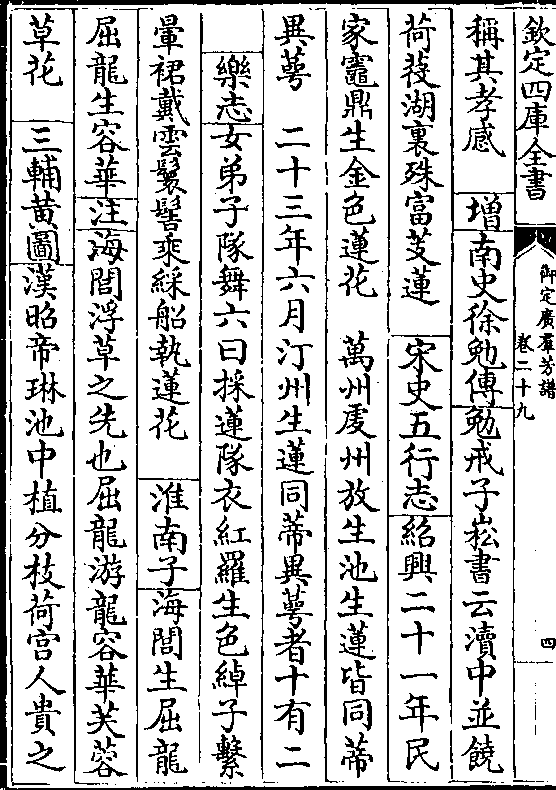 欽定四庫全書
御定廣羣芳譜
卷二十九
四
稱其孝感　增南史徐勉傳勉戒子崧書云瀆中並饒
荷茭湖裏殊富芰蓮　宋史五行志紹興二十一年民
家竈鼎生金色蓮花　萬州虔州放生池生蓮皆同蒂
異萼　二十三年六月汀州生蓮同蒂異萼者十有二
樂志女弟子隊舞六曰採蓮隊衣紅羅生色綽子繫
暈裙戴雲鬟髻乘綵船執蓮花　淮南子海閭生屈龍
屈龍生容華注海閭浮草之先也屈龍游龍容華芙蓉
草花　三輔黃圖漢昭帝琳池中植分枝荷宫人貴之